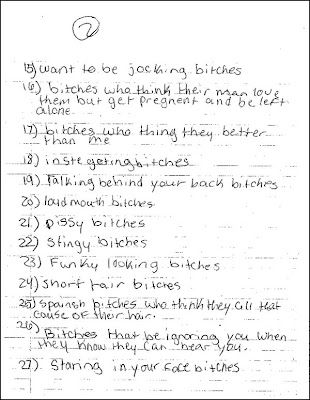 2
15) want to be jocking bitches
16) bitches who think their man love
them but get pregnent and be left
alone
17) bitches who thing they better
than me
18) instegeting bitches
19) talking behind your back bitches
20) loud mouth bitches
21) pissy bitches
22) Stingy bitches
23) Funky looking bitches
24) Short hair bitches
25) Spanish bitches who think they all that
cause of their hair.
26) Bitches that be ignoring you when
they know they can hear you.
27) Staring in your face bitches